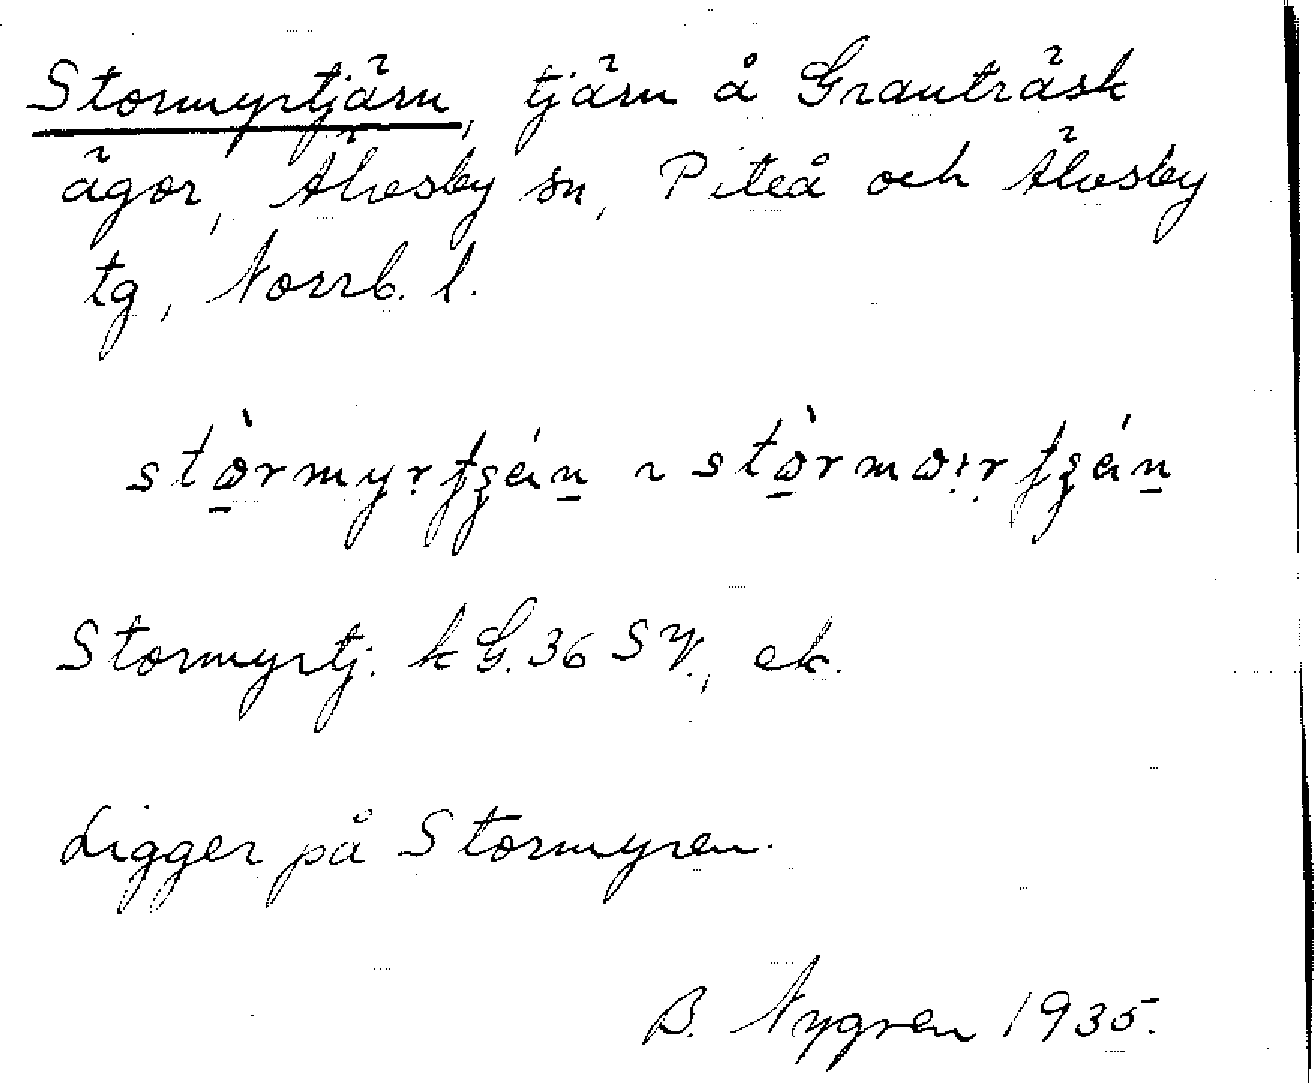 Stormyrtjärn, tjärn å Granträsk
ägor, Älvsby sn, Piteå och Älvsby
tg, Norrb. l.
Stormyrtj. k G. 36 SV., ek.
Ligger på Stormyren.
B. Nygren 1935.